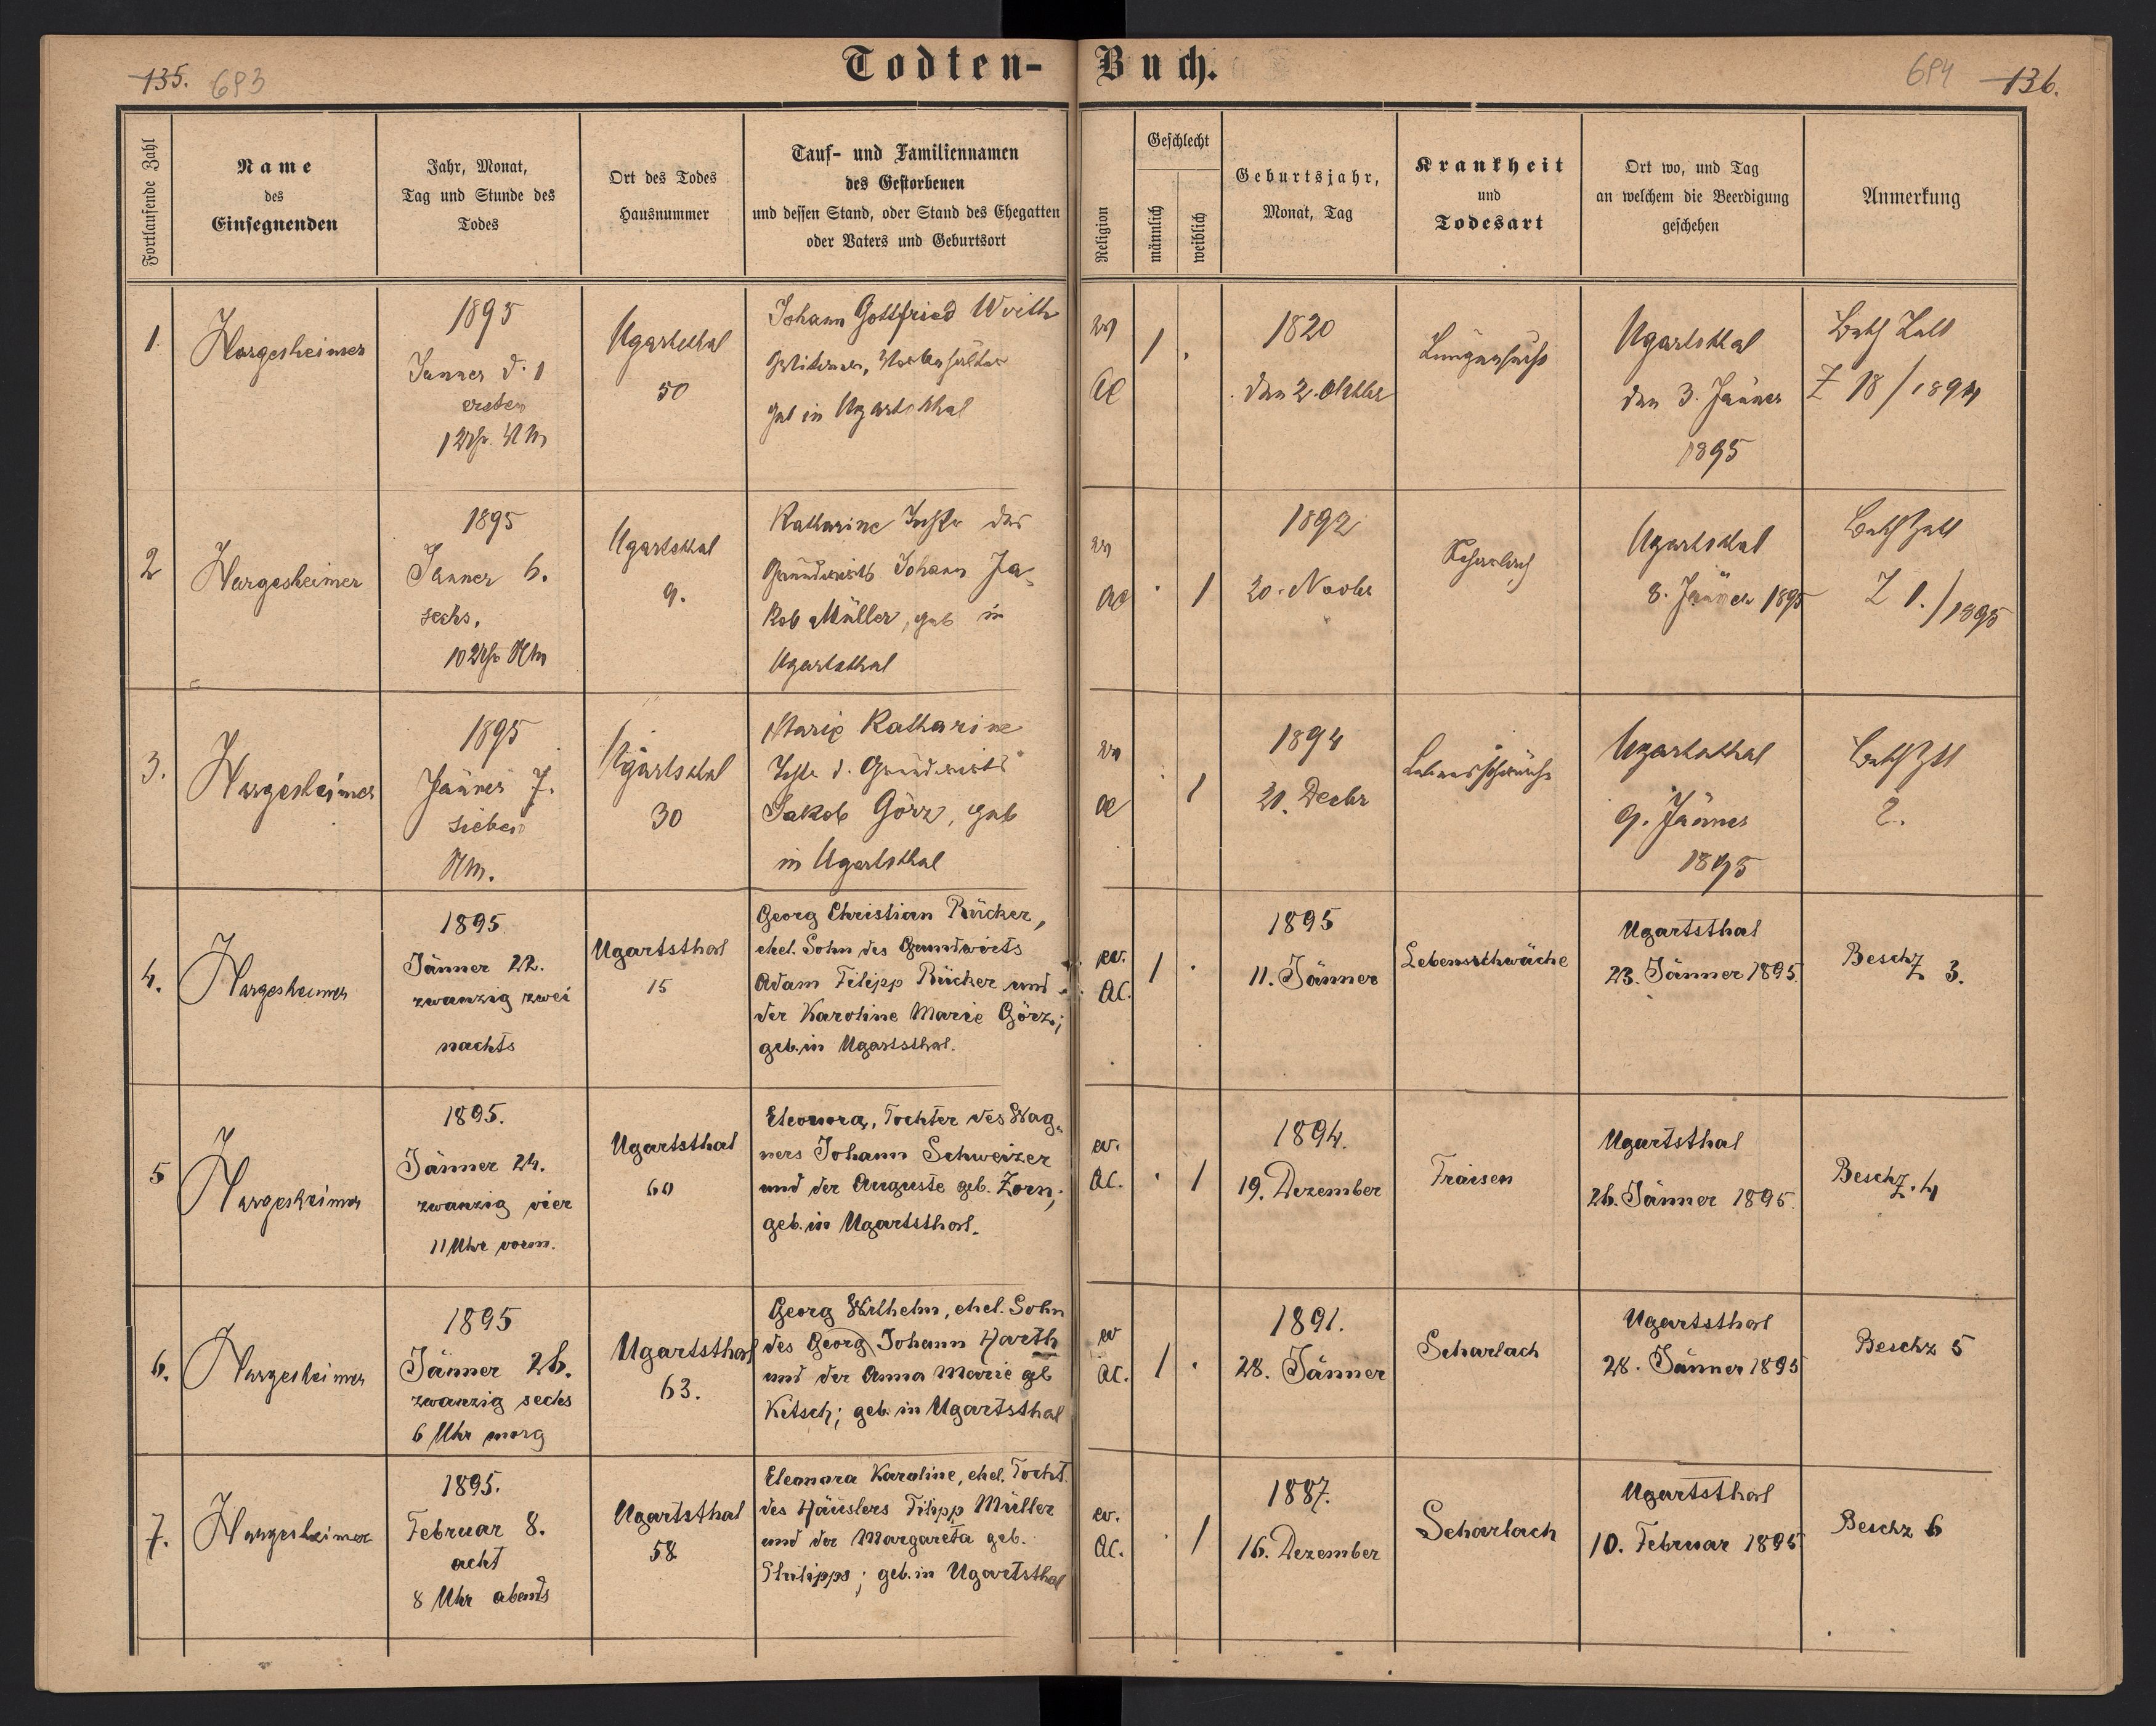 Todten-Buch.
135. 693
694 136.
Fortlaufende Zahl
Name
des
Einsegnenden
Jahr, Monat,
Tag und Stunde des
Todes
Ort des Todes
Hausnummer
Tauf- und Familiennamen
des Gestorbenen
und dessen Stand, oder Stand des Ehegatten
oder Vaters und Geburtsort
Religion
Geschlecht
männlich
weiblich
Geburtsjahr,
Monat, Tag
Krankheit
und
Todesart
Ort wo, und Tag
an welchem die Beerdigung
geschehen
Anmerkung
1.
Hargesheimer
1895
Jänner d. 1
ersten
Ugartsthal
50
Johann Gottfried
Witwer,
geb in Ugartsthal
ev
AC
1 .
1820
den 2. Oktbr
Lungensucht
Ugartsthal
den 3. Jänner
1895
Z 18/1894
2
Hargesheimer
1895
Jänner 6.
sechs,
10 Uhr Nm
Ugartsthal
9.
Katharine Tochter des
Grundwirts Johann Ja-
kob Müller, geb in
Ugartsthal
ev
AC
. 1
1892
20. Novbr
Scharlach
Ugartsthal
8. Jänner 1895
Z 1./1895
3.
Hargesheimer
1895
Jänner 7.
sieben
Nm.
Ugartsthal
30
Marie Katharine
Tocht. d. Grundwirts
Jakob Görz, geb
in Ugartsthal
ev
AC
. 1
1894
21. Decbr
Lebensschwäche
Ugartsthal
9. Jänner
1895
2.
4.
Hargesheimer
1895
Jänner 22.
zwanzig zwei
nachts
Ugartsthal
15
Georg Christian Rücker,
ehel. Sohn des Grundwirts
Adam Filipp Rücker und
der Karoline Marie Görz;
geb. in Ugartsthal.
ev.
AC.
1 .
1895
11. Jänner
Lebensschwäche
Ugartsthal
23. Jänner 1895
Beschz 3.
5
Hargesheimer
1895.
Jänner 24.
zwanzig vier
11 Uhr vorm.
Ugartsthal
60
Eleonora, Tochter des Wag-
ners Johann Schweizer
und der Auguste geb. Zorn;
geb. in Ugartsthal.
ev.
AC.
. 1
1894.
19. Dezember
Fraisen
Ugartsthal
26. Jänner 1895.
Beschz. 4
6.
Hargesheimer
1895
Jänner 26.
zwanzig sechs
6 Uhr morg
Ugartsthal
63.
Georg Wilhelm, ehel. Sohn
des Georg Johann Harth
und der Anna Marie geb
Ketsch; geb. in Ugartsthal
ev
AC.
1 .
1891.
28. Jänner
Scharlach
Ugartsthal
28. Jänner 1895
Beschz 5
7.
Hargesheimer
1895.
Februar 8.
acht
8 Uhr abends
Ugartsthal
58
Eleonora Karoline, ehel. Tocht.
des Häuslers Filipp Müller
und der Margareta geb.
Philipps; geb. in Ugartsthal
ev.
AC.
. 1
1887.
16. Dezember
Scharlach
Ugartsthal
10. Februar 1895
Beschz 6